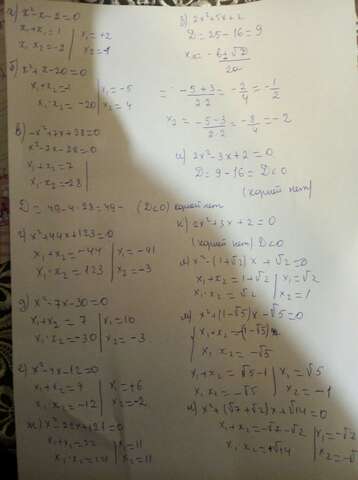 а) x²-x-2=0
x₁+x₂=1 | x₁=+2
x₁·x₂=-2 | x₂=-1
б) x²+x-20=0
x₁+x₂=-1 | x₁=-5
x₁·x₂=-20 | x₂=4
в) -x²+7x+28=0
x²-7x-28=0
x₁+x₂=7
x₁·x₂=-28
D=49-4·28=49- (D<0) корней нет
г) x²+44x+123=0
x₁+x₂=-44 | x₁=-41
x₁·x₂=123 | x₂=-3
д) x²-7x-30=0
x₁+x₂=7 | x₁=10
x₁·x₂=-30 | x₂=-3
е) x²-4x-12=0
x₁+x₂=4 | x₁=+6
x₁·x₂=-12 | x₂=-2
ж) x²-22x+121=0
x₁+x₂=22 | x₁=11
x₁·x₂=121 | x₂=11
з) 2x²+5x+2
D=25-16=9
= -5+3/2·2 = -2/4 = -1/2
x₂= -5-3/2·2 = -8/4 = -2
и) 2x²-3x+2=0
D=9-16= D<0
(корней нет)
к) 2x²+3x+2=0
(корней нет) D<0
x²-(1+√2)x+√2=0
x₁+x₂=1+√2 | x₁=√2
x₁·x₂=√2 | x₂=1
x²+(1-√5)x-√5=0
x₁+x₂=-(1-√5)
x₁·x₂=-√5
x₁+x₂=√5-1 | x₁=√5
x₁·x₂=-√5 | x₂=-1
x²+(√7+√2)x+√14=0
x₁+x₂=-√7-√2 | x₁=-√7
x₁·x₂=+√14